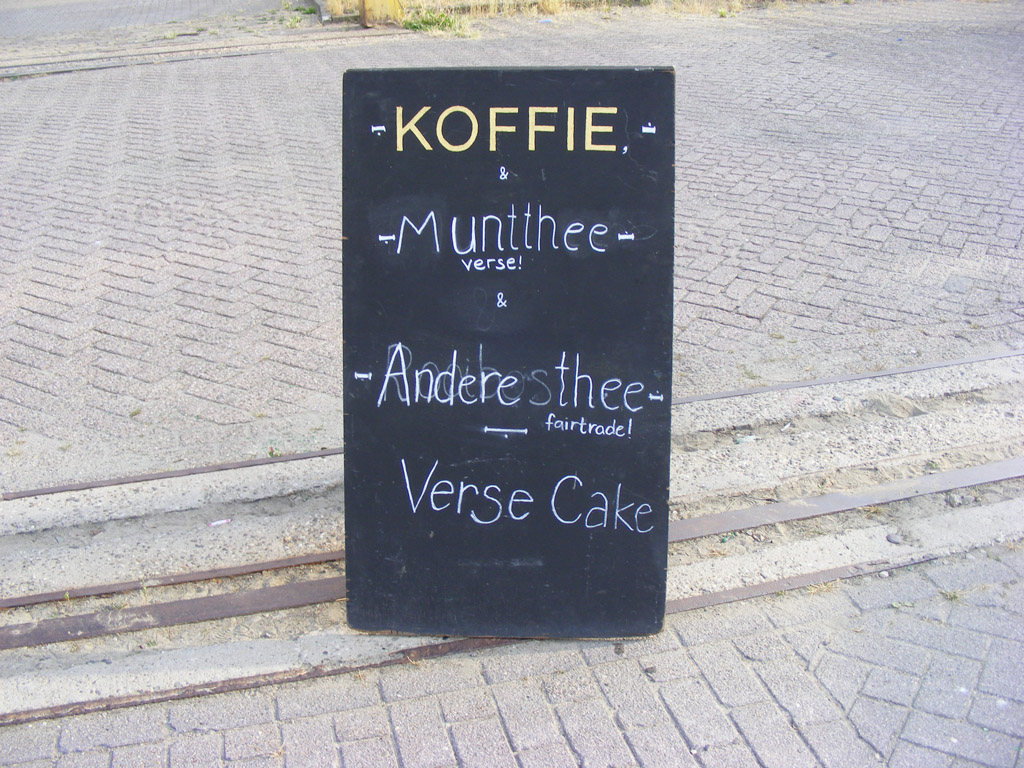 KOFFIE,
&
Muntthee
verse!
&
Andere thee
fairtrade!
Verse Cake